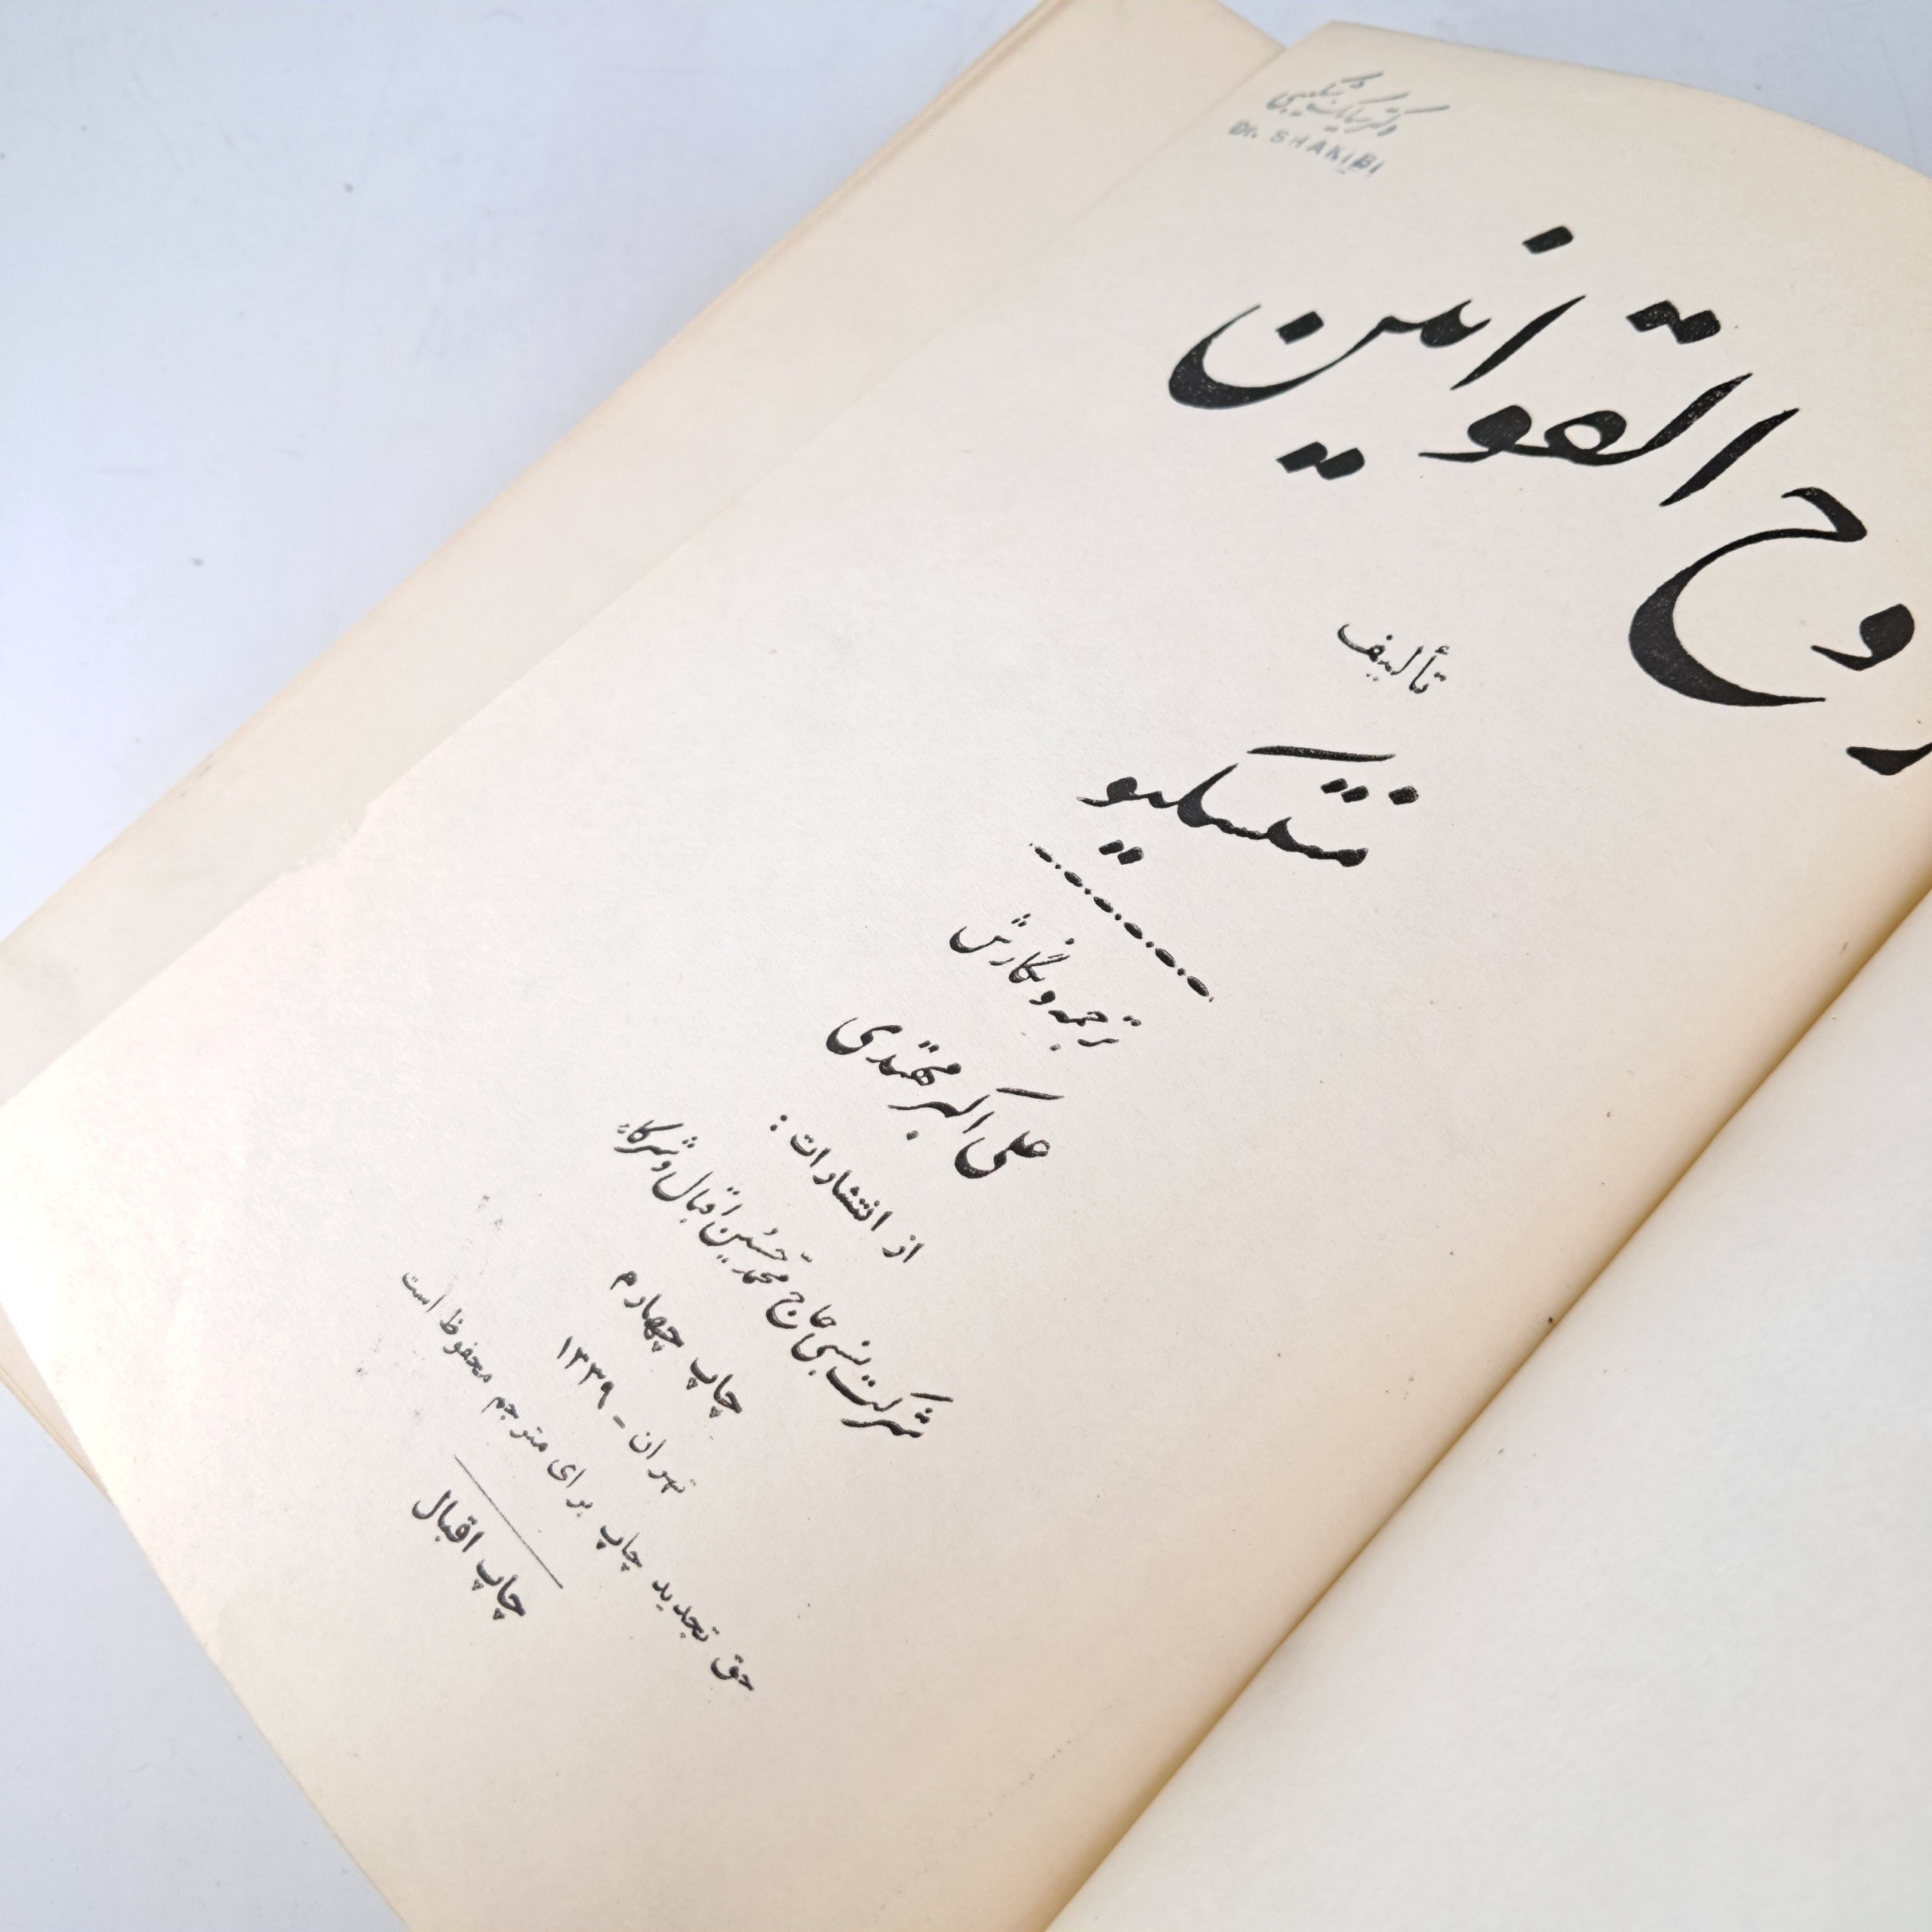 دکتر شکیبی
Dr. SHAKIBI
روح القوانین
تألیف
منتسکیو
ترجمه و نگارش
علی اکبر مهتدی
از انتشارات :
شرکت نسبی حاج محمد حسین اقبال و شرکاء
چاپ چهارم
تهران - ۱۳۳۹
حق تجدید چاپ برای مترجم محفوظ است
چاپ اقبال